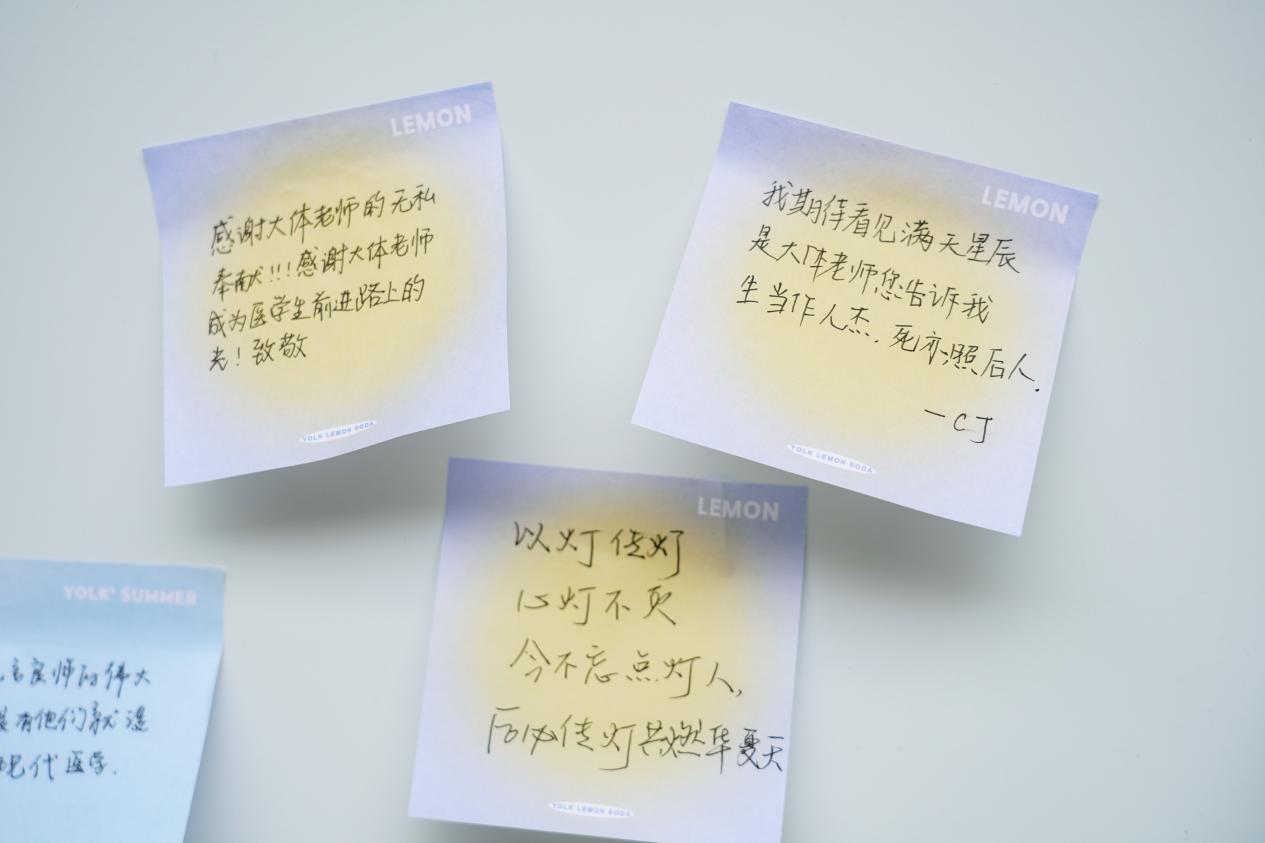 LEMON
感谢大体老师的无私
奉献!!!感谢大体老师
成为医学生前进路上的
光!致敬
YOLK LEMON SODA
LEMON
我期待看见满天星辰
是大体老师您告诉我
生当作人杰.死亦照后人.
—CJ
YOLK LEMON SODA
LEMON
以灯传灯
心灯不灭
今不忘点灯人,
后必传灯共燃华夏天
YOLK LEMON SODA
YOLK® SUMMER
言良师的伟大
没有他们就没
现代医学.